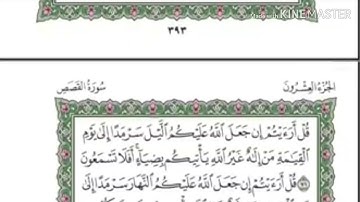 Made with KINEMASTER
٣٩٣
الجُزْءُ العِشْرُونَ
سُورَةُ القَصَصِ
قُلْ أَرَءَيْتُمْ إِن جَعَلَ ٱللَّهُ عَلَيْكُمُ ٱلَّيْلَ سَرْمَدًا إِلَىٰ يَوْمِ
ٱلْقِيَٰمَةِ مَنْ إِلَٰهٌ غَيْرُ ٱللَّهِ يَأْتِيكُم بِضِيَآءٍ أَفَلَا تَسْمَعُونَ
٧١ قُلْ أَرَءَيْتُمْ إِن جَعَلَ ٱللَّهُ عَلَيْكُمُ ٱلنَّهَارَ سَرْمَدًا إِلَىٰ